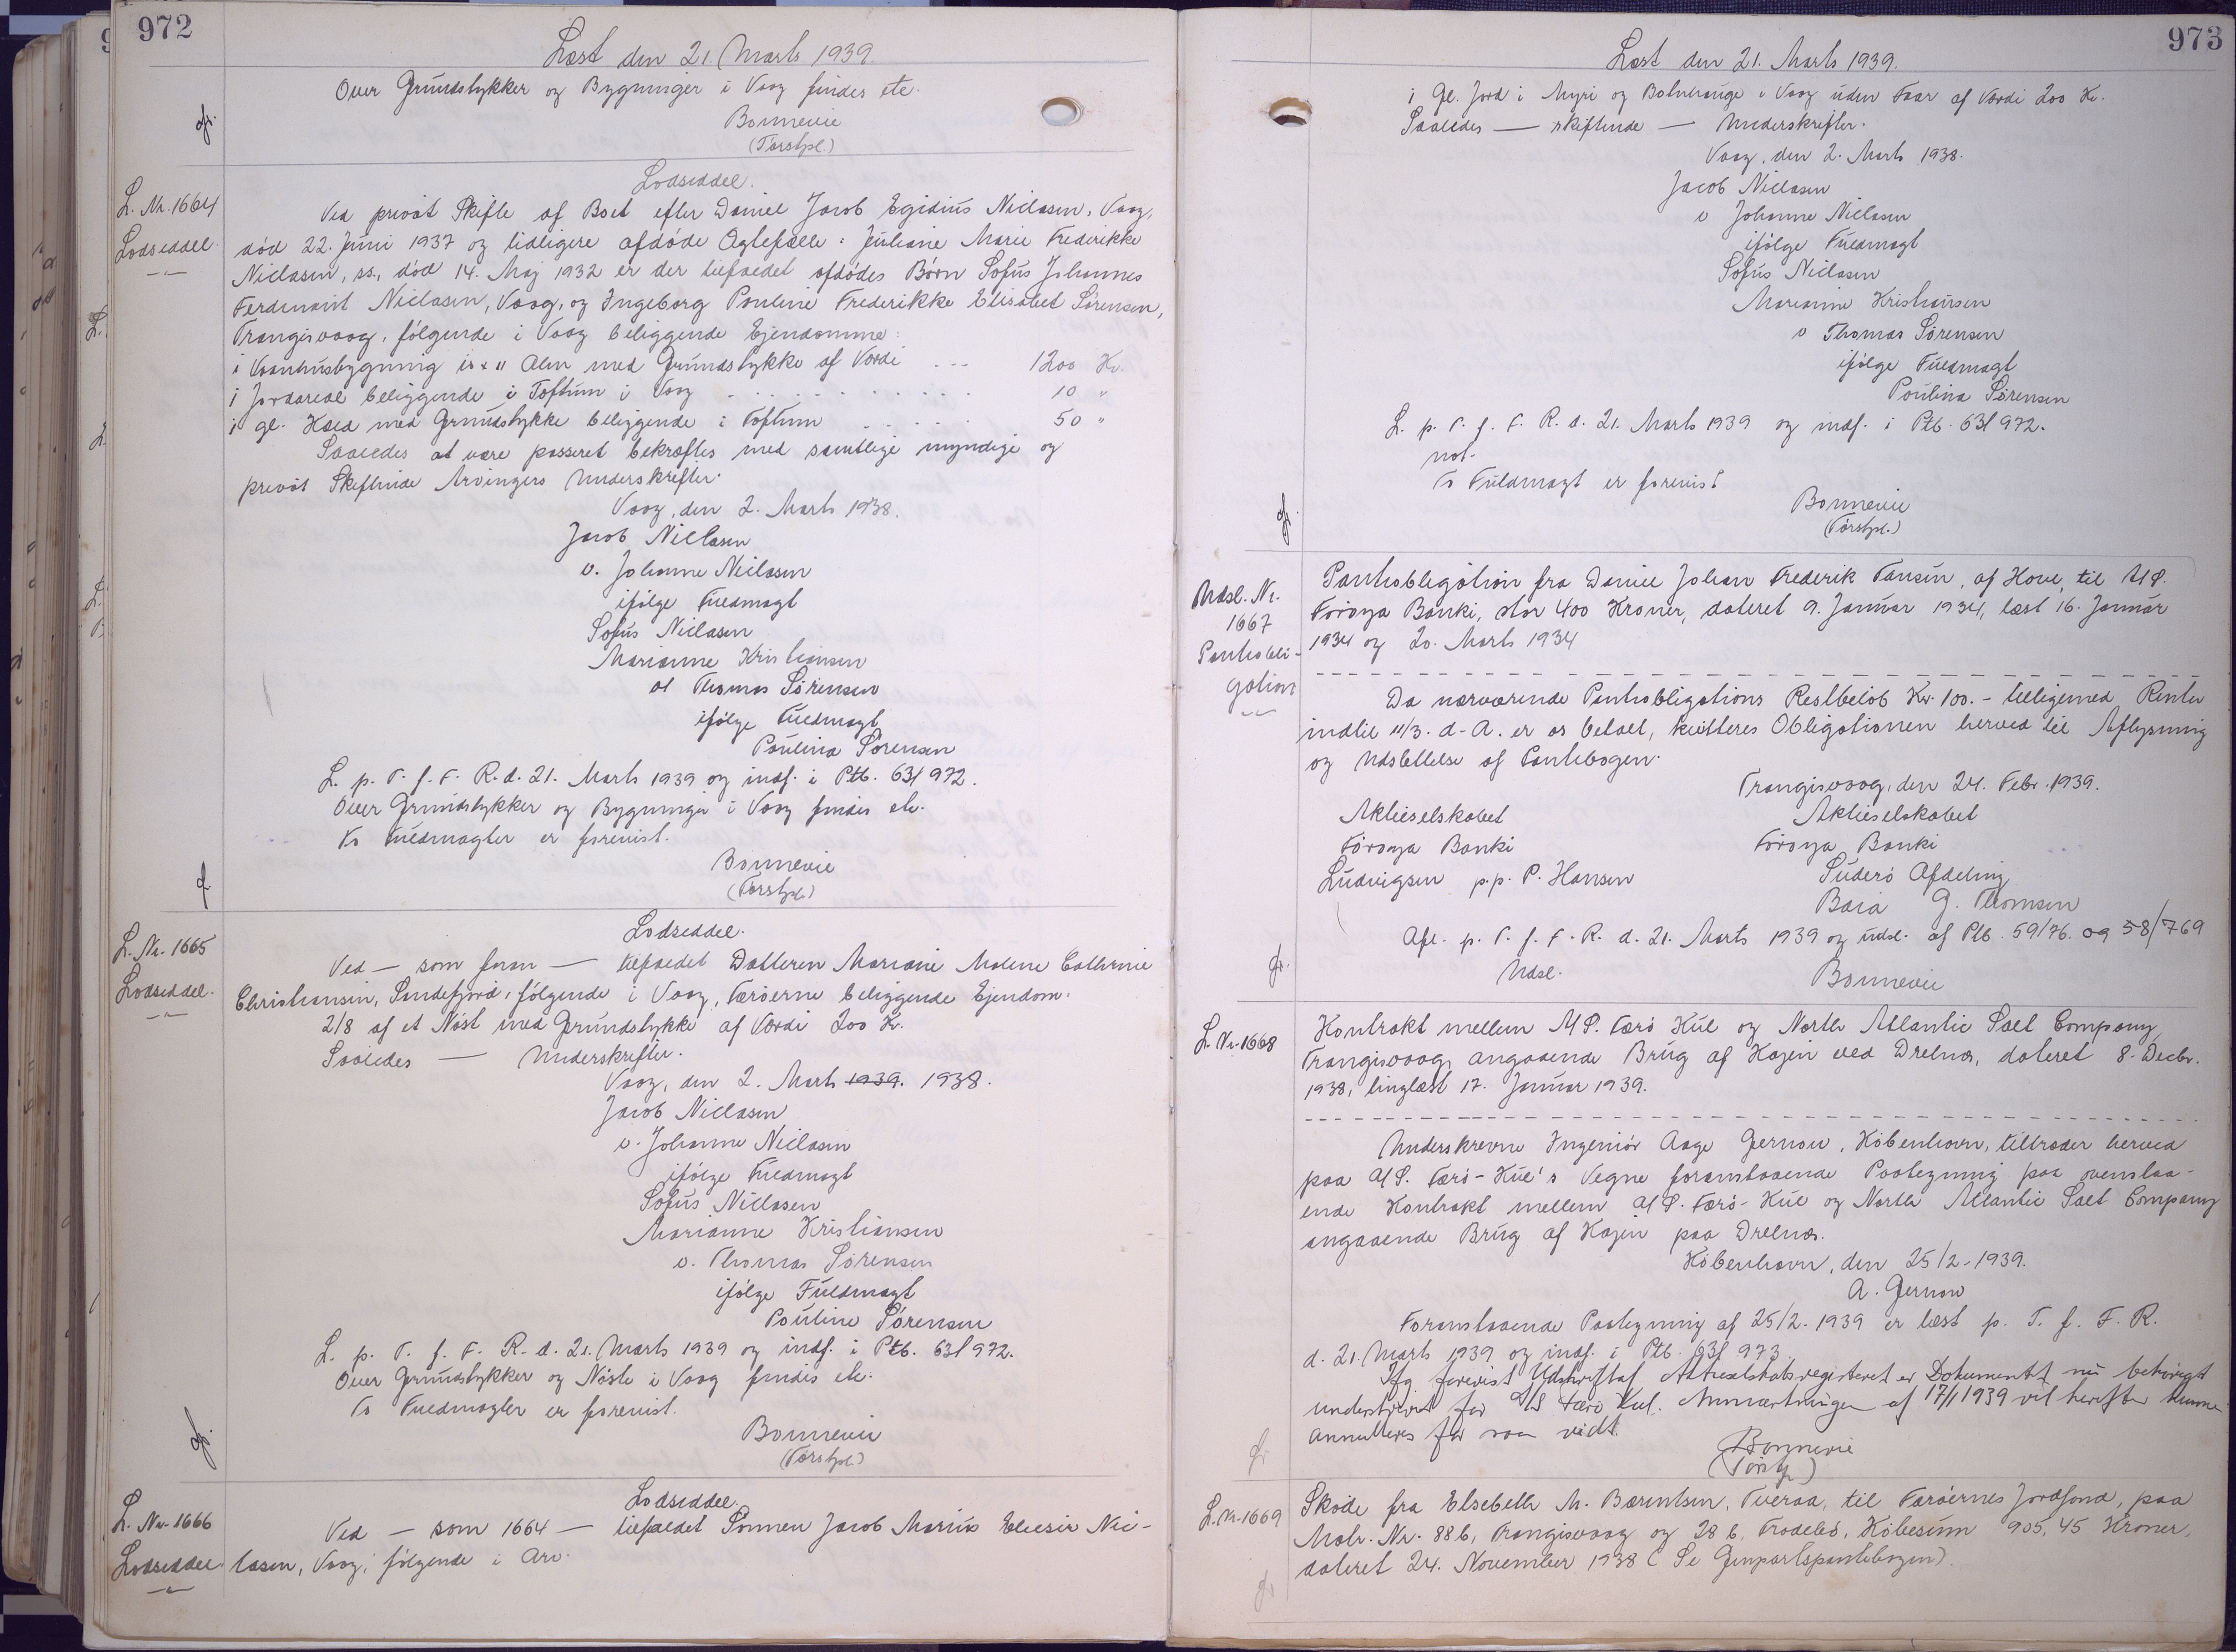 972
Læst den 21. Marts 1939.
Over Grundstykker og Bygninger i Vaag findes etc.
Bonnevie
(Torshpl.)
Lodseddel.
L. Nr. 1664
Lodseddel
Ved privat Skifte af Boet efter Daniel Jacob Egidius Niclasen, Vaag,
død 22. Juni 1937 og tidligere afdøde Ægtefælle: Juliane Marie Frederikke
Niclasen, ss., død 14. Maj 1932 er der tilfaldet afdødes Børn Sofus Johannes
Ferdinant Niclasen, Vaag, og Ingeborg Pauline Frederikke Elisabet Sørensen,
Trangisvaag, følgende i Vaag beliggende Ejendomme:
i Vaanhusbygning 12 x 11 Alen med Grundstykke af Værdi --- 1200 Kr.
i Jordareal beliggende i Toftum i Vaag 10 "
i gl. Hæd med Grundstykke beliggende i Toftum 50 "
Saaledes at være passeret bekræftes med samtlige myndige og
privat Skiftende Arvingers Underskrifter.
Vaag, den 2. Marts 1938.
Jacob Niclasen
v. Johanne Niclasen
ifølge Fuldmagt
Sofus Niclasen
Marianne Kristiansen
v/ Thomas Sørensen
ifølge Fuldmagt
Poulina Sørensen
L. p. T. f. F. R. d. 21. Marts 1939 og indf. i Ptb. 63/972.
Over Grundstykker og Bygninger i Vaag findes etc.
To Fuldmagter er forevist.
Bonnevie
(Torshpl.)
Lodseddel.
L. Nr. 1665
Lodseddel.
Ved — som foran — tilfaldet Datteren Mariane Malene Cathrine
Christiansen, Sandefjord, følgende i Vaag, Færøerne beliggende Ejendom:
2/8 af et Nøst med Grundstykke af Værdi 200 Kr.
Saaledes — Underskrifter.
Vaag, den 2. Marts 1939. 1938.
Jacob Niclasen
v. Johanne Niclasen
ifølge Fuldmagt
Sofus Niclasen
Marianne Kristiansen
v. Thomas Sørensen
ifølge Fuldmagt
Pouline Sørensen
L. p. T. f. F. R. d. 21. Marts 1939 og indf. i Ptb. 63/972.
Over Grundstykker og Nøste i Vaag findes etc.
To Fuldmagter er forevist.
Bonnevie
(Torshpl.)
Lodseddel.
L. Nr. 1666
Lodseddel
Ved — som 1664 — tilfaldet Sønnen Jacob Marius Eliesir Nic-
lasen, Vaag, følgende i Arv.
973
Læst den 21. Marts 1939.
i Gl. Jord i Myri og Bølnhauge i Vaag uden Faar af Værdi 200 Kr.
Saaledes — skiftende — Underskrifter.
Vaag, den 2. Marts 1938.
Jacob Niclasen
v Johanne Niclasen
ifølge Fuldmagt
Sofus Niclasen
Marianne Kristiansen
v Thomas Sørensen
ifølge Fuldmagt
Poulina Sørensen
L. p. T. f. F. R. d. 21. Marts 1939 og indf. i Ptb. 63/972.
not.
To Fuldmagt er forevist
Bonnevie
(Torshpl.)
Udsl. Nr.
1667
Pantobli-
gation
Pantobligation fra Daniel Johan Frederik Tausen, af Hove, til A/S.
Føroya Banki, stor 400 Kroner, dateret 9. Januar 1934, læst 16. Januar
1934 og 20. Marts 1934
Da nærværende Pantobligations Restbeløb Kr. 100.- tilligemed Renter
indtil 11/3. d. A. er os betalt, kvitteres Obligationen herved til Aflysning
og Udslettelse af Pantebogen.
Trangisvaag, den 24. Febr. 1939.
Aktieselskabet Aktieselskabet
Føroya Banki Føroya Banki
Ludvigsen p.p. P. Hansen Suderø Afdeling
G. Thomsen
Afl. p. T. f. F. R. d. 21. Marts 1939 og udsl. af Ptb. 59/76. og 58/769
Udsl. Bonnevie
L. Nr. 1668
Kontrakt mellem A/S. Færø Kul og North Atlantic Salt Company,
Trangisvaag, angaaende Brug af Kajen ved Drelnæs, dateret 8. Decbr.
1938, tinglæst 17. Januar 1939.
Underskrevne Ingeniør Aage Gernow, København, tiltræder herved
paa A/S. Færø-Kul's Vegne foranstaaende Paategning paa ovenstaa-
ende Kontrakt mellem A/S. Færø-Kul og North Atlantic Salt Company
angaaende Brug af Kajen paa Drelnæs.
København, den 25/2-1939.
A. Gernow
Foranstaaende Paategning af 25/2. 1939 er læst p. T. f. F. R.
d. 21. Marts 1939 og indf. i Ptb. 63/973.
Ifg. forevist Udskrift af Aktieselskabsregisteret er Dokumentet nu behørigt
underskrevet for A/S Færø Kul. Anmærkningen af 17/1 1939 vil herefter kunne
annulleres for saa vidt.
Bonnevie
L. Nr. 1669
Skøde fra Elsebeth M. Bærentsen, Tveraa, til Færøernes Jordfond, paa
Matr. Nr. 88 b, Trangisvaag og 28 b, Frodebø, Købesum 905,45 Kroner,
dateret 24. November 1938 (Se Genpartspantebogen).